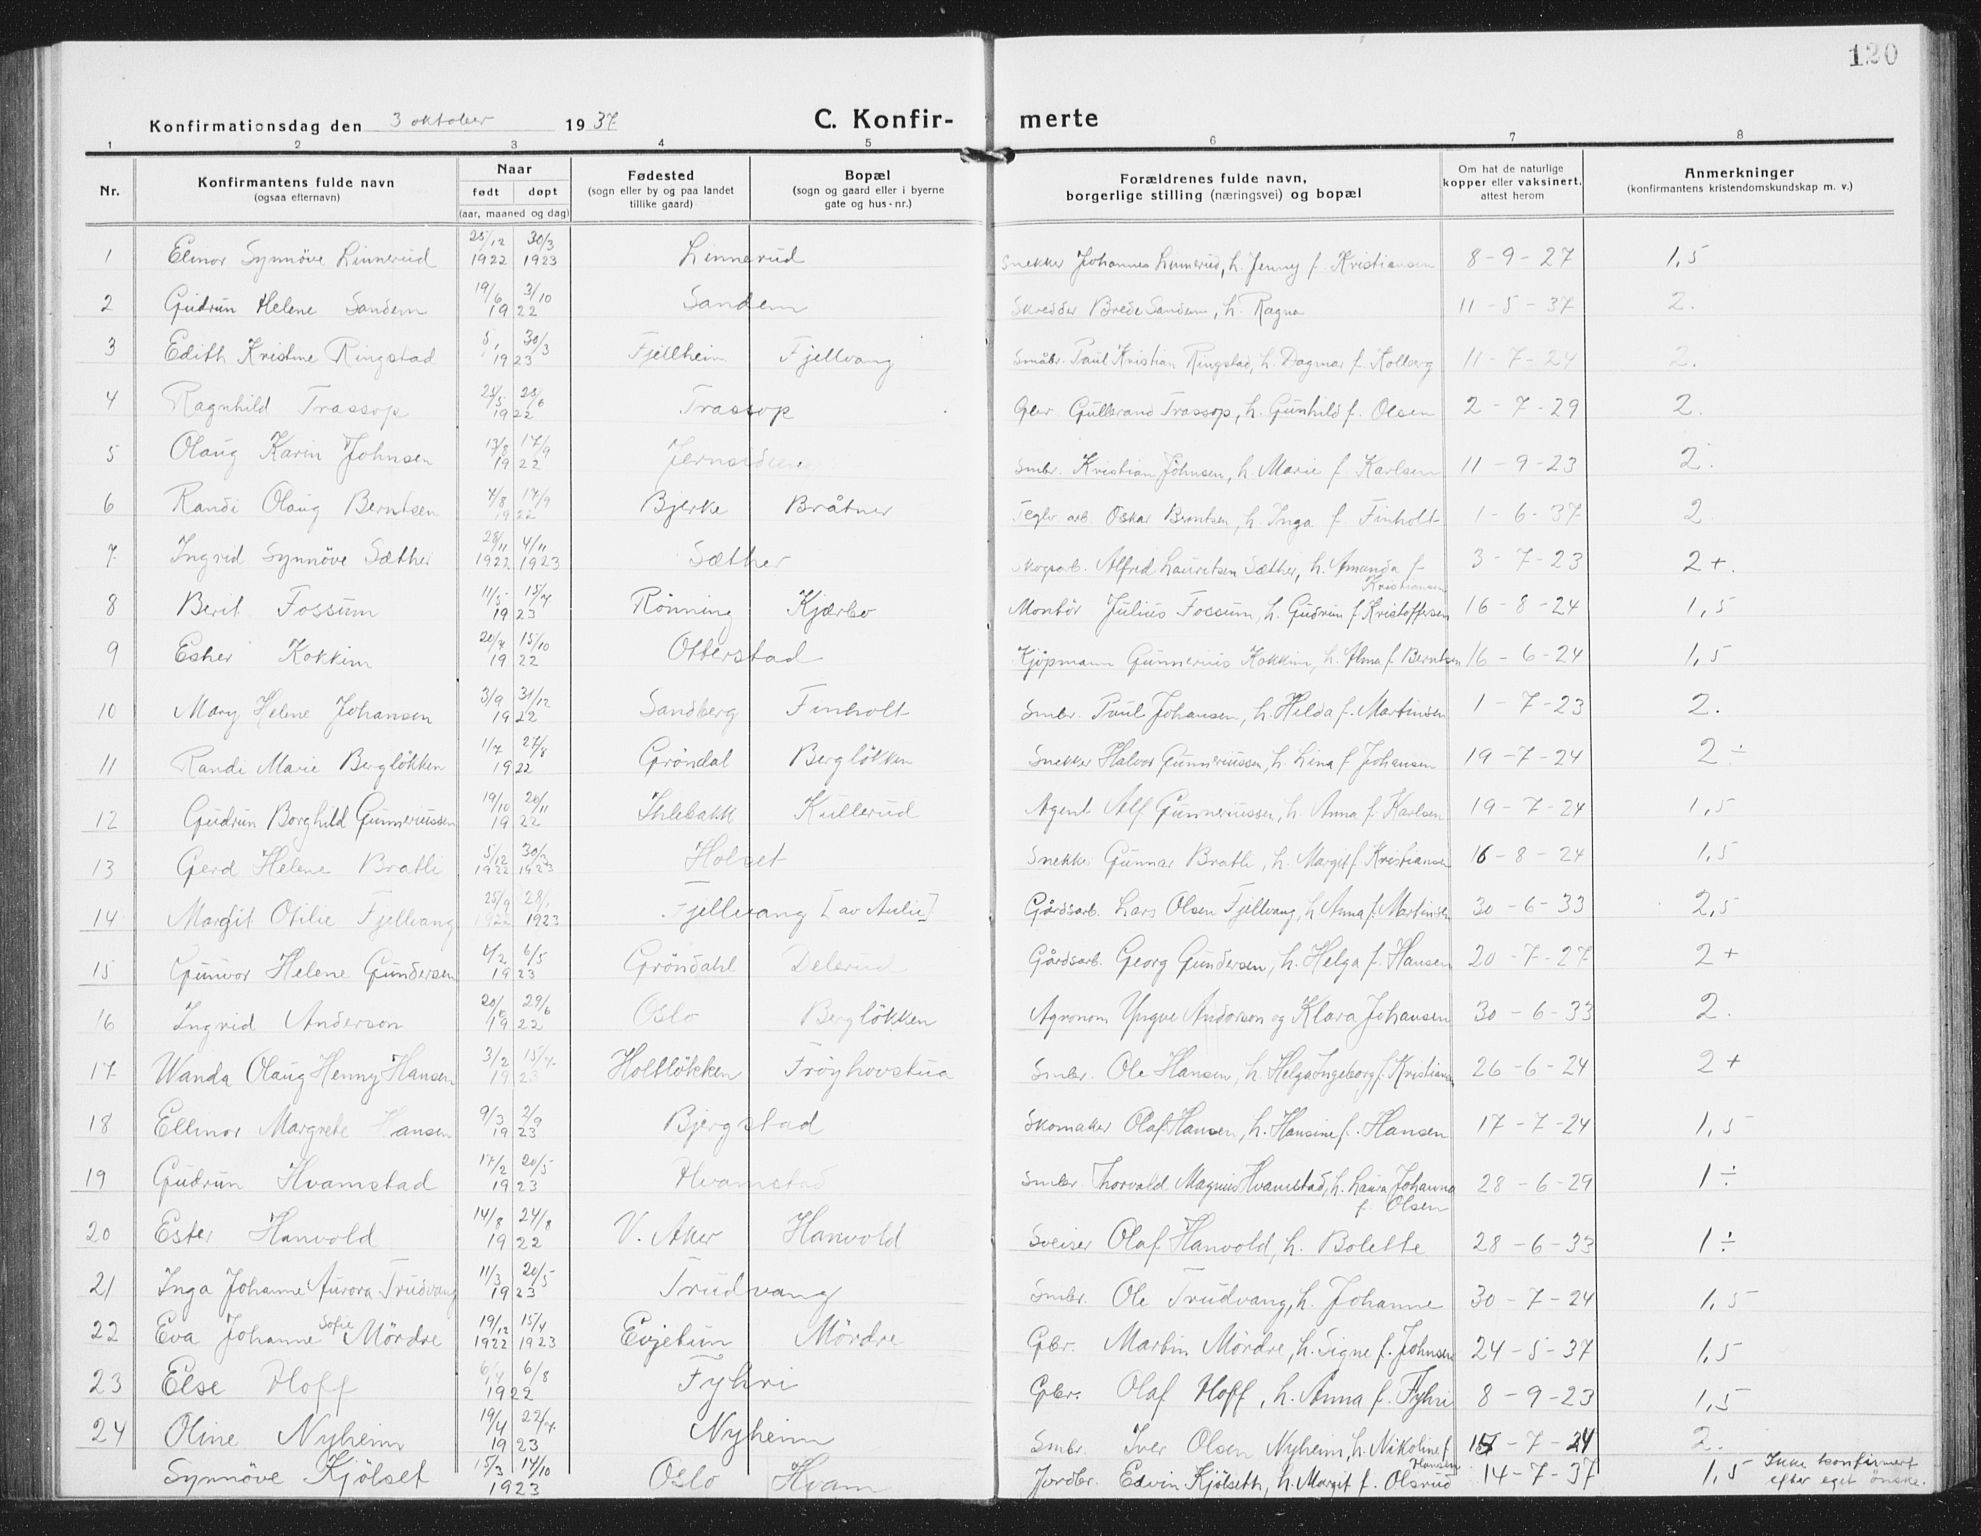 120
Konfirmationsdag den 3 oktober 1937 C. Konfir- merte
1 2 3 4 5 6 7 8
Nr. Konfirmantens fulde navn (ogsaa efternavn) Naar født døpt (aar, maaned og dag) Fødested (sogn eller by og paa landet tillike gaard) Bopæl (sogn og gaard eller i byerne gate og hus-nr.) Forældrenes fulde navn, borgerlige stilling (næringsvei) og bopæl Om hat de naturlige kopper eller vaksinert, attest herom Anmerkninger (konfirmantens kristendomskundskap m. v.)
1 Elinor Synnöve Linnerud 25/12 1922 30/3 1923 Linnerud Snekker Johannes Linnerud, h. Jenny f. Kristiansen 8-9-27 1,5
2 Gudrun Helene Sandem 19/6 3/10 1922 Sandem Skredder Brede Sandem, h. Ragna 11-5-37 2.
3 Edith Kristine Ringstad 30/3 1923 Fjellheim Fjellvang Småbr. Paul Kristian Ringstad, h. Dagmar f. Kolberg 11-7-24 2.
4 Ragnhild Trassop 25/5 25/6 1922 Trassop Gbr Gulbrand Trassop, h. Gunhild f. Olsen 2-7-29 2.
5 Olaug Karin Johnsen 13/8 17/9 1922 Smbr. Kristian Johnsen, h. Marie f. Karlsen 11-9-23 2.
6 Randi Olaug Berntsen 7/8 17/9 1922 Bjerke Bråtner Teglv. arb. Oskar Berntsen, h. Inga f. Finholt 1-6-37 2.
7 Ingrid Synnöve Sæther 28/11 1922 4/11 1923 Sæther Skogsarb. Alfred Lauritsen Sæther, h. Amanda f. Kristiansen 3-7-23 2+.
8 Berit Fossum 11/5 15/7 1923 Rönning Kjærbo Montör Julius Fossum, h. Gudrun f. Kristoffersen 16-8-24 1,5
9 Esher Kokkim 20/7 15/10 1922 Otterstad Kjöpmann Gunnerius Kokkim, h. Alma f. Berntsen 16-6-24 1,5
10 Mary Helene Johansen 3/9 31/12 1922 Sandberg Finholt Smbr. Paul Johansen, h. Hilda f. Martinsen 1-7-23 2.
11 Randi Marie Berglökken 1/7 27/8 1922 Gröndal Berglökken Snekker Halvor Gunneriussen, h. Lina f. Johansen 19-7-24 2÷
12 Gudrun Borghild Gunneriussen 19/10 20/11 1922 Ihlebakk Kullerud Agent Alf Gunneriussen, h. Anna f. Karlsen 19-7-24 1,5
13 Gerd Helene Bratli 5/12 1922 30/3 1923 Holset Snekker Gunnar Bratli, h. Margit f. Kristiansen 16-8-24 1,5
14 Margit Otilie Fjellvang 25/9 1922 28/1 1923 Fjellvang [av Aulie] Gårdsarb. Lars Olsen Fjellvang, h. Anna f. Martinsen 30-6-33 2,5
15 Gunvor Helene Gundersen 4/2 6/5 1923 Gröndahl Delerud Gårdsarb. Georg Gundersen, h. Helga f. Hansen 20-7-27 2+
16 Ingrid Anderson 20/6 29/6 1922 Oslo Berglökken Agronom Yngve Anderson og Klara Johansen 30-6-33 2.
17 Wanda Olaug Henny Hansen 3/2 15/4 1923 Holtlökken Fröyhovstua Smbr. Ole Hansen, h. Helga Ingeborg f. Kristiansen 26-6-24 2+
18 Ellinor Margrete Hansen 9/3 2/9 1923 Bjergstad Skomaker Olaf Hansen, h. Hansine f. Hansen 17-7-24 1,5
19 Gudrun Hvamstad 17/2 20/5 1923 Hvamstad Smbr. Thorvald Magnus Hvamstad, h. Laura Johanna f. Olsen 28-6-29 1÷
20 Ester Hanvold 14/8 24/8 1922 V. Aker Hanvold Sveiser Olaf Hanvold, h. Bolette 28-6-33 1÷
21 Inga Johanne Aurora Trudvang 11/3 20/5 1923 Trudvang Smbr. Ole Trudvang, h. Johanne 30-7-24 1,5
22 Eva Johanne Sofie Mördre 19/12 1922 15/4 1923 Evjetun Mördre Gbr. Martin Mördre, h. Signe f. Johnsen 24-5-37 1,5
23 Else Hoff 6/8 1922 Fyhri Gbr. Olaf Hoff, h. Anna f. Fyhri 8-9-23 1,5
24 Oline Nyheim 19/4 22/7 1923 Nyheim Smbr. Iver Olsen Nyheim, h. Nikoline f. Hansen 7-24 2.
Synnöve Kjölset 15/3 14/10 1923 Oslo Hvam Jordbr. Edvin Kjölseth, h. Margit f. Olsrud 14-7-37 1,5 Ikke konfirmert efter eget önske.